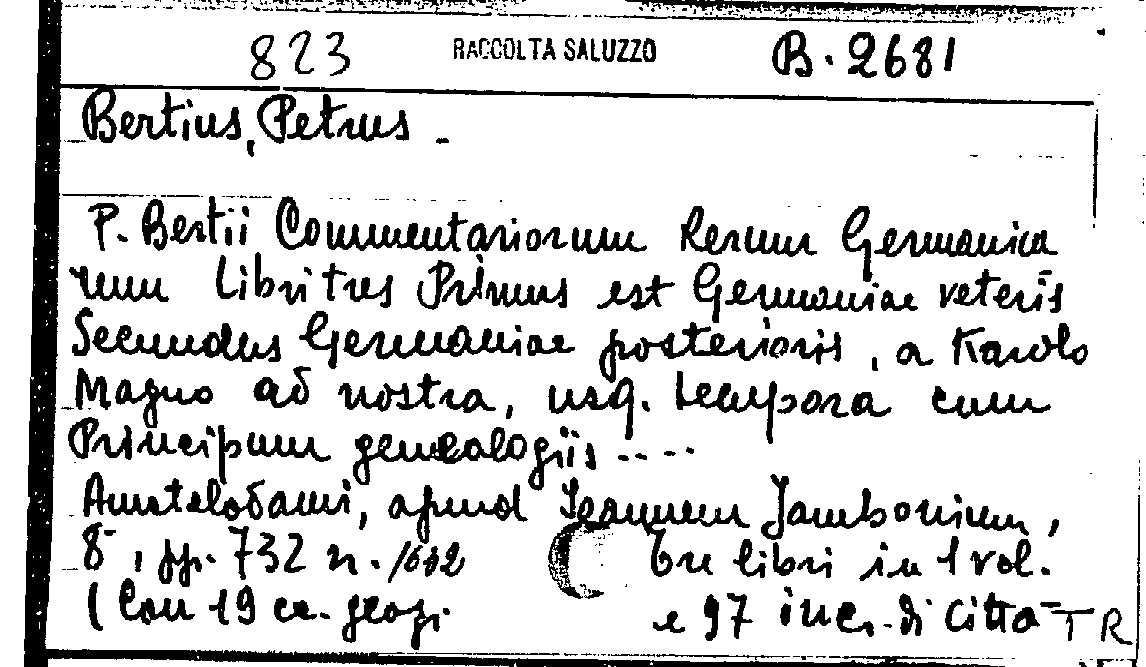 823 RACCOLTA SALUZZO B. 2681
Bertius, Petrus -
P. Bertii Commentariorum Rerum Germanica
rum Libri tres Primus est Germaniae veteris
Secundus Germaniae posterioris, a Karolo
Magno ad nostra, usq. tempora cum
Principum genealogiis ....
Amstelodami, apud Ioannem Jambonium,
8°, pp. 732 n. Tre libri in 1 vol.
(Con 19 ca. geog. e 97 inc. di Città TR